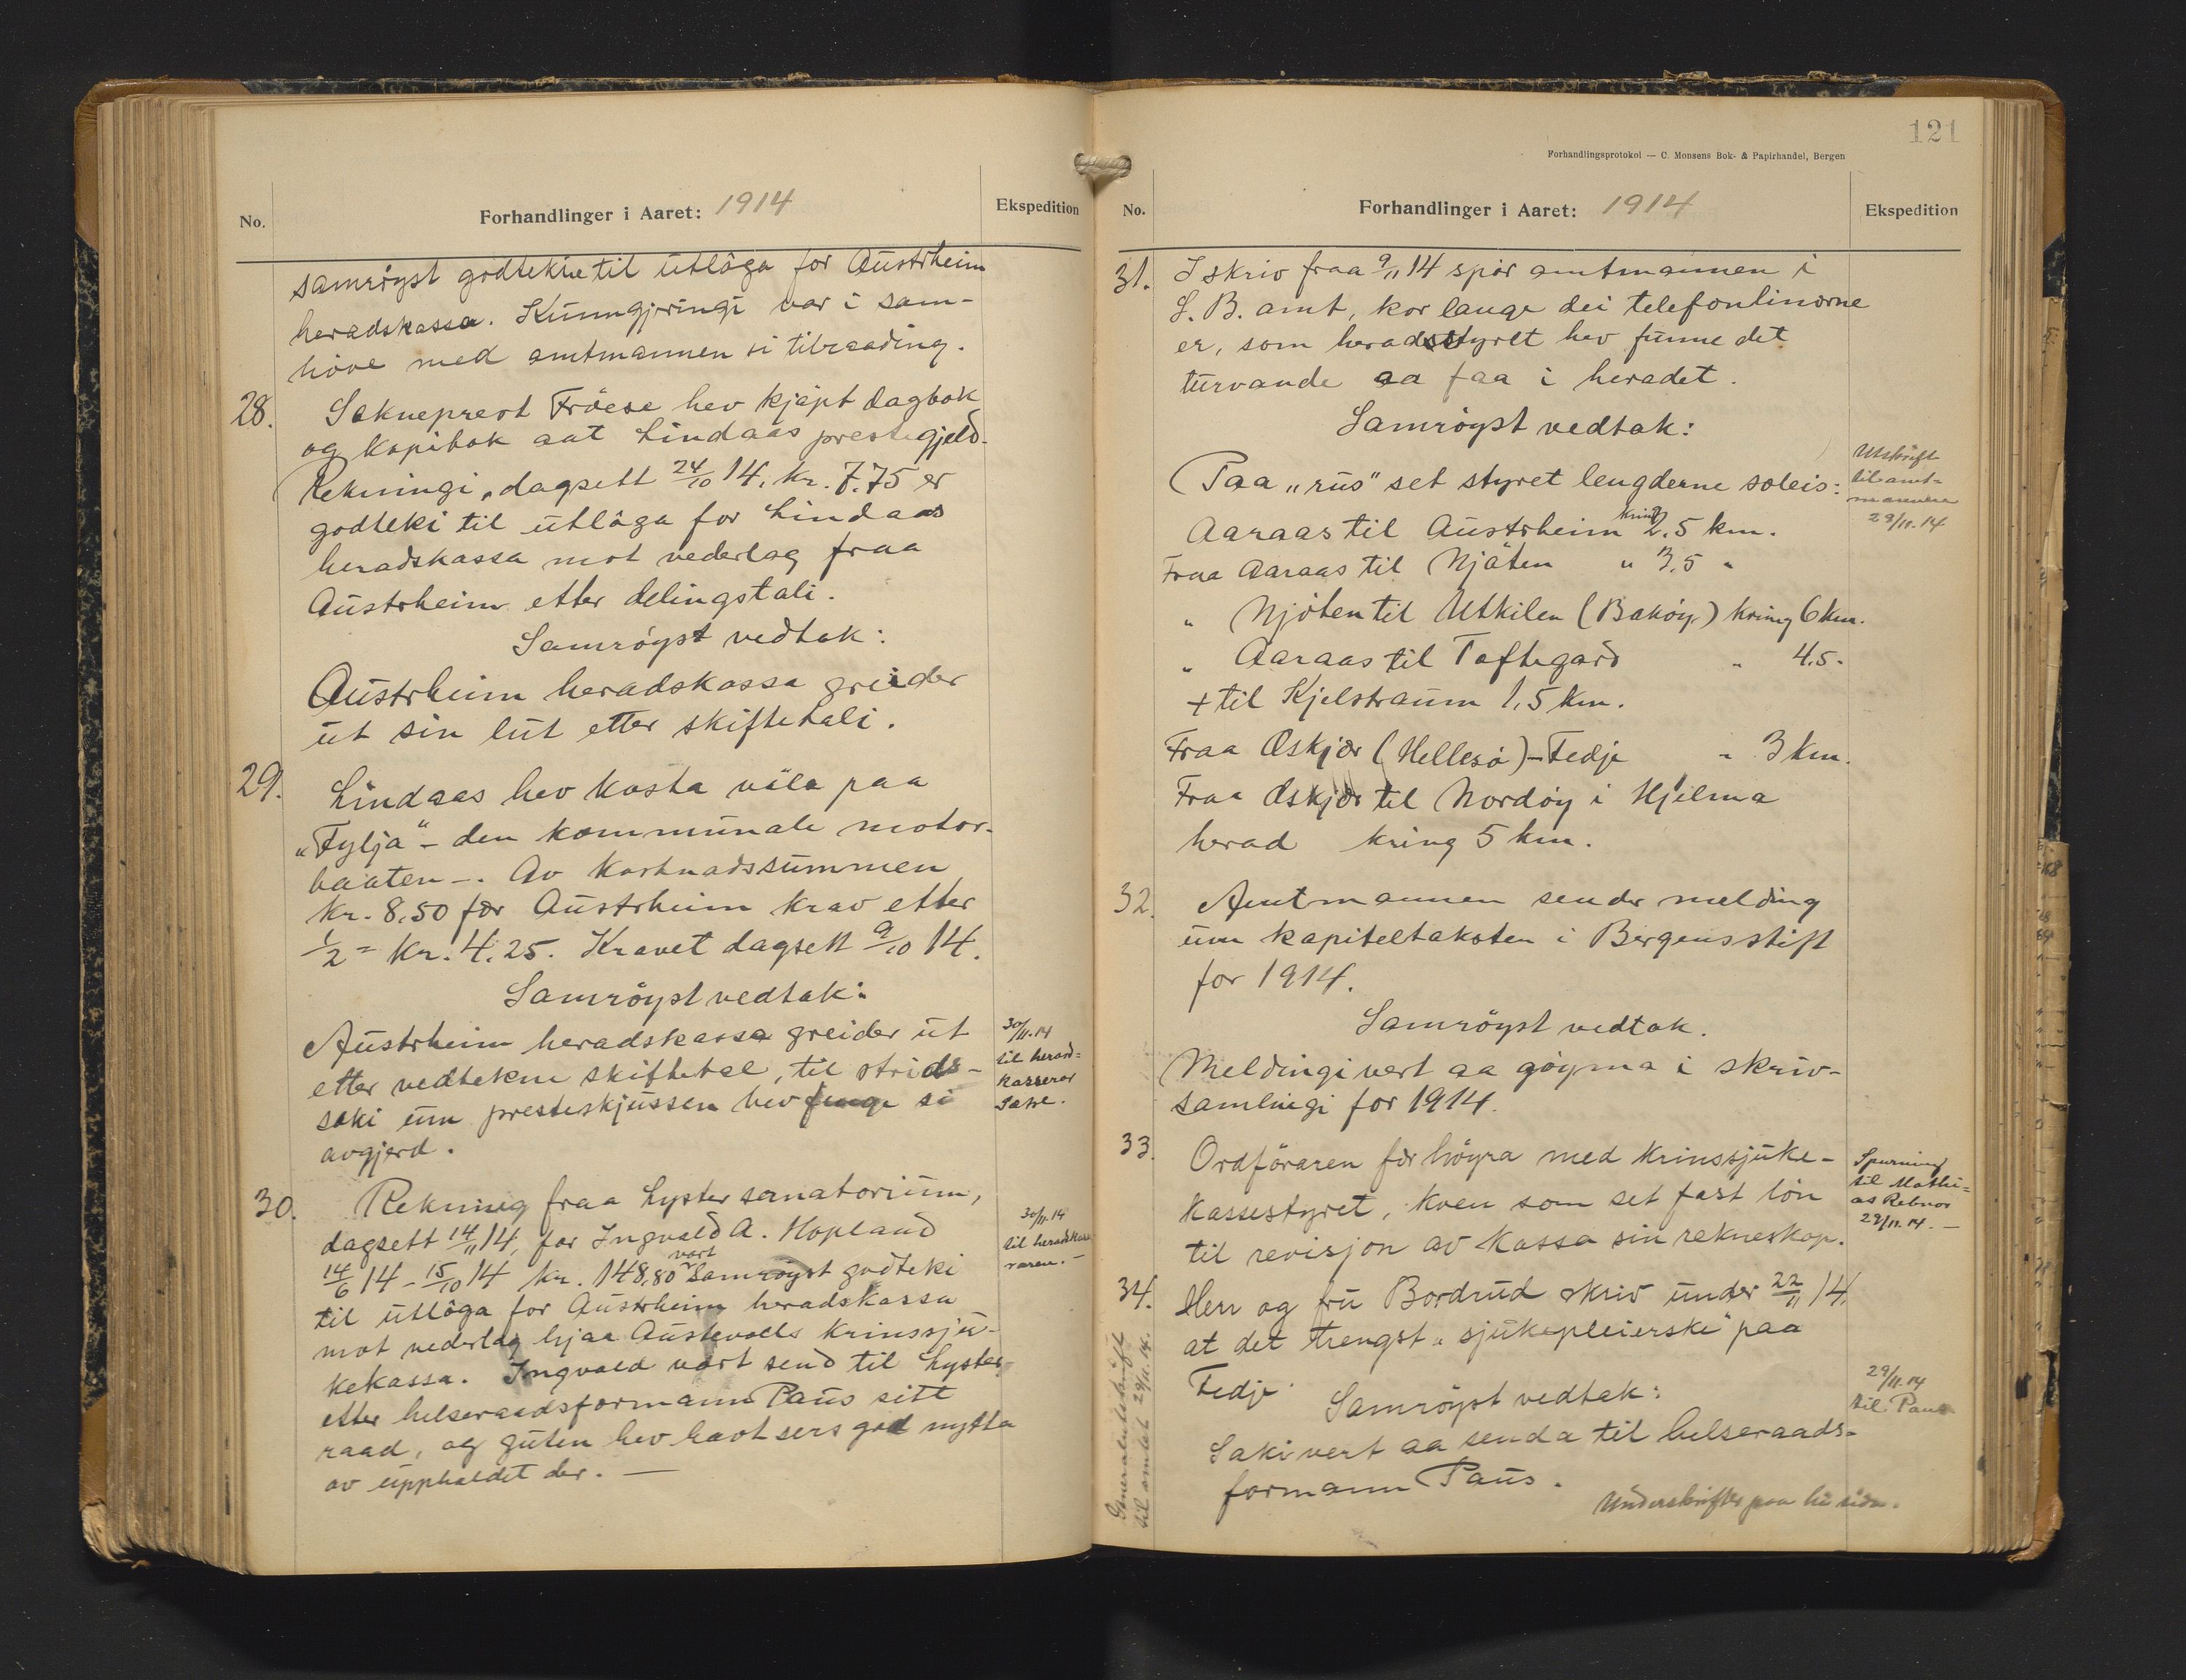 No.
Forhandlinger i Aaret: 1914
Ekspedition
samrøyst godtekne til utlåga for Austrheim
heradskassa. Kunngjeringi var i sam-
høve med amtmannen si tilraading.
28. Sokneprest Frøese hev kjøpt dagbok
og kopibok aat Lindaas prestegjeld.
Rekningi, dagsett 24/10 14, kr. 7.75 er
godteki til utlåga for Lindaas
heradskassa mot vederlag fraa
Austrheim etter delingstali.
Samrøyst vedtak:
Austrheim heradskassa greider
ut sin lut etter skiftetali.
29. Lindaas hev kosta vøla paa
"Fylja" - den kommunale motor-
baaten -. Av kostnadssummen
kr. 8,50 før Austrheim krav etter
1/2 = kr. 4.25. Kravet dagsett 9/10 14.
Samrøyst vedtak:
Austrheim heradskassa greider ut
etter vedtekne skiftetal, til strids-
saki um presteskjussen hev fenge si
avgjerd.
30/11.14
til herads=
kasserar
Sætre.
30. Rekning fraa Lyster sanatorium,
dagsett 14/11 14, for Ingvald A. Hopland
14/6 14 - 15/10 14 kr. 148,80 vart samrøyst godteki
til utlåga for Austrheim heradskassa
mot vederlag hjaa Austevolls krinssju-
kekassa. Ingvald vart send til Lyster
etter helseraadsformann Paus sitt
raad, og guten hev havt sers god nytta
av upphaldet der. —
30/11.14
til heradskasse-
raren. —
121
Forhandlingsprotokol — C. Monsens Bok- & Papirhandel, Bergen
No.
Forhandlinger i Aaret: 1914
Ekspedition
31. I skriv fraa 9/11 14 spør amtmannen i
S. B. amt, kor lange dei telefonlinorne
er, som heradsstyret hev funne det
turvande aa faa i heradet.
Samrøyst vedtak:
Paa "rus" set styret lengderne soleis:
Aaraas til Austrheim kring 2.5 km.
Fraa Aaraas til Njøten " 3,5 "
" Njøten til Utkilen (Bakøy) kring 6 km.
" Aaraas til Toftegard " 4.5.
+ til Kjelstraum 1,5 km.
Fraa Øskjer (Hellesø) - Fedje " 3 km.
Fraa Øskjer til Nordøy i Hjelma
herad kring 5 km.
Utskrift
til amt=
mannen
29/11.14
32. Amtmannen sender melding
um kapiteltaksten i Bergens stift
for 1914.
Samrøyst vedtak.
Meldingi vert aa gøyma i skriv-
samlingi for 1914.
33. Ordføraren fær høyra med krinssjuke-
kassestyret, kven som set fast løn
til revisjon av kassa sin rekneskap.
Spurning
til Mathi=
as Rebnor
29/11.14. —
34. Herr og fru Bordrud skriv under 22/11 14,
at det trengst "sjukepleierske" paa
Fedje.
Samrøyst vedtak:
Saki vert aa senda til helseraads-
formann Paus.
29/11.14
til Paus
Underskrifter paa hi sida.
Generalutskrift
til amtet 29/11.14.